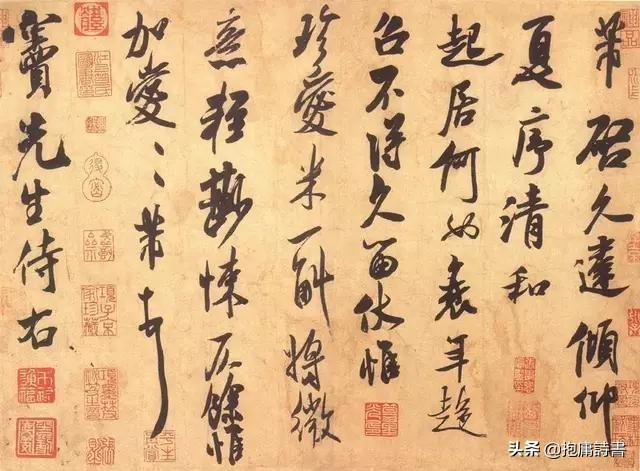 芾啓久違傾仰
夏序清和
起居何如衰年趨
召不得久留伏惟
珍愛米一斛將微
意輕尠悚仄餘惟
加愛〻芾頓首
竇先生侍右
头条 @抱庸詩書